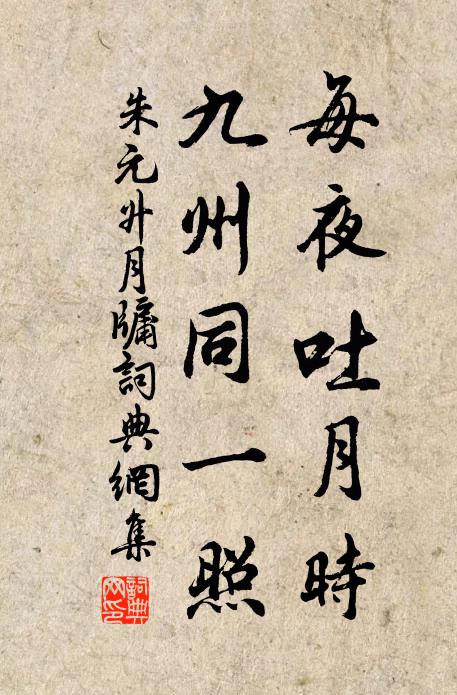 每夜吐月時
九州同一照
朱元升月牖詞典網集
詞典網印